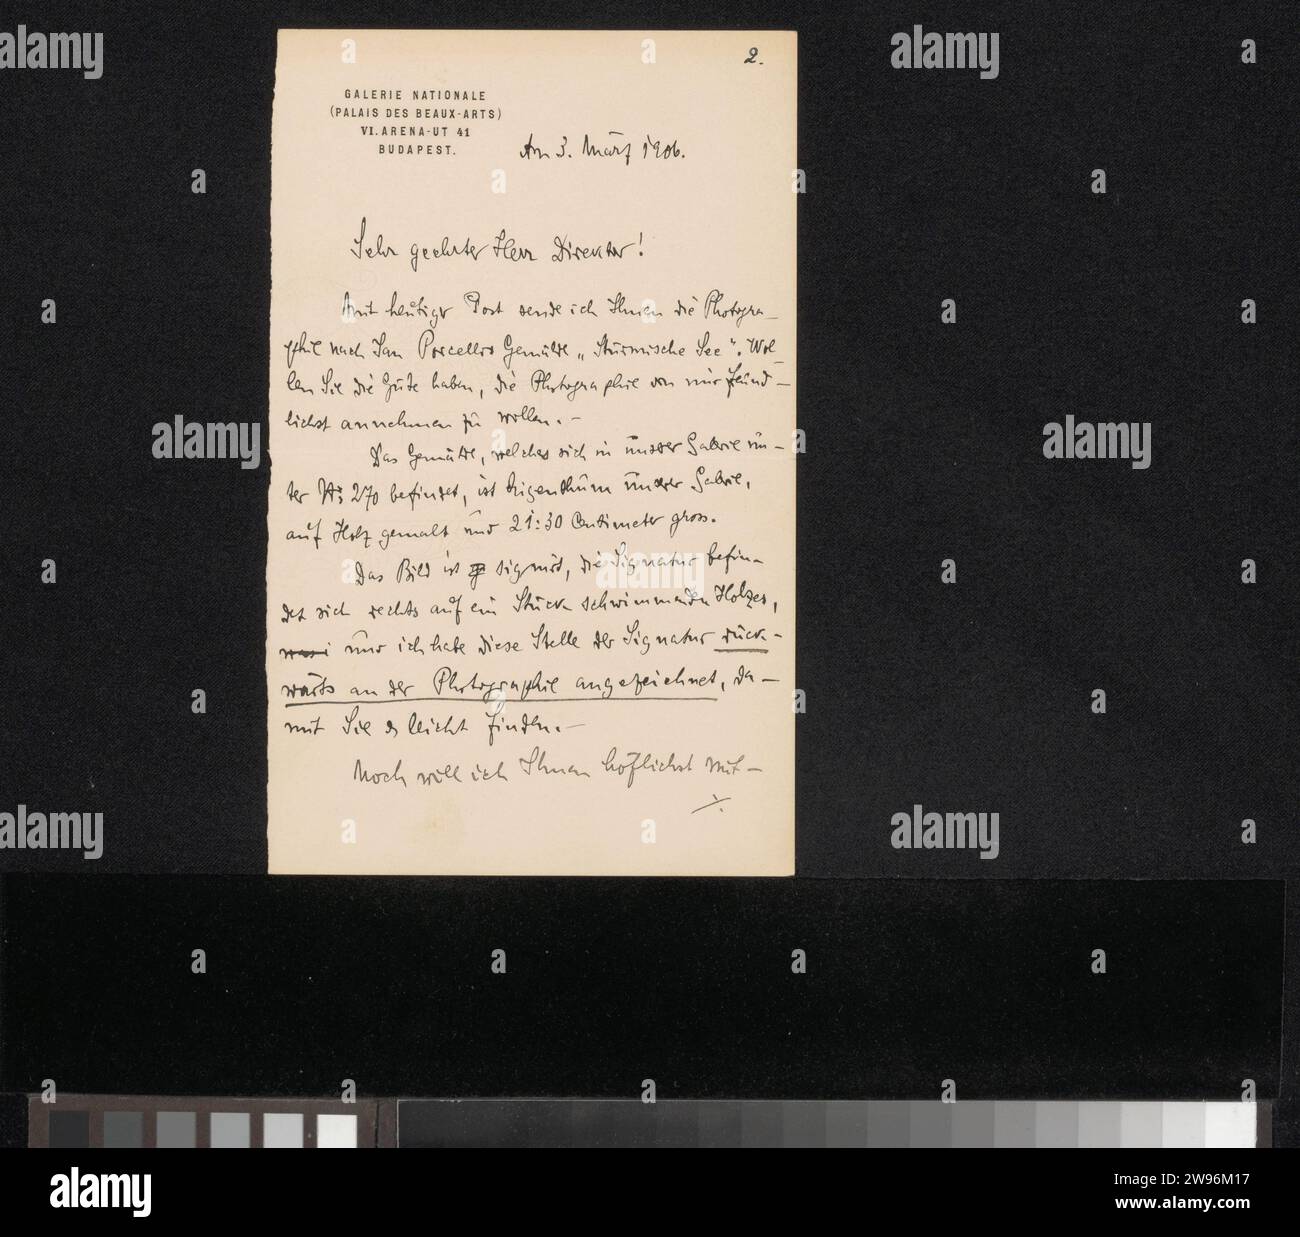 2.
GALERIE NATIONALE
(PALAIS DES BEAUX-ARTS)
VI. ARENA-UT 41
BUDAPEST.
Am 3. März 1906.
Sehr geehrter Herr Direktor!
Mit heutiger Post sende ich Ihnen die Photogra-
phie nach Jan Porcellis Gemälde „Stürmische See“. Wol-
len Sie die Güte haben, die Photographie von mir freund-
lichst annehmen zu wollen.-
Das Gemälde, welches sich in unserer Galerie un-
ter No 270 befindet, ist Eigenthum unserer Galerie,
auf Holz gemalt und 21:30 Centimeter gross.
Das Bild ist signirt, die Signatur befin-
det sich rechts auf ein Stück schwimmenden Holzes,
und ich habe diese Stelle der Signatur rück-
wärts an der Photographie angezeichnet, da-
mit Sie es leicht finden.-
Noch will ich Ihnen höflichst mit-
./.
alamy
Image ID: 2W96M17
www.alamy.com